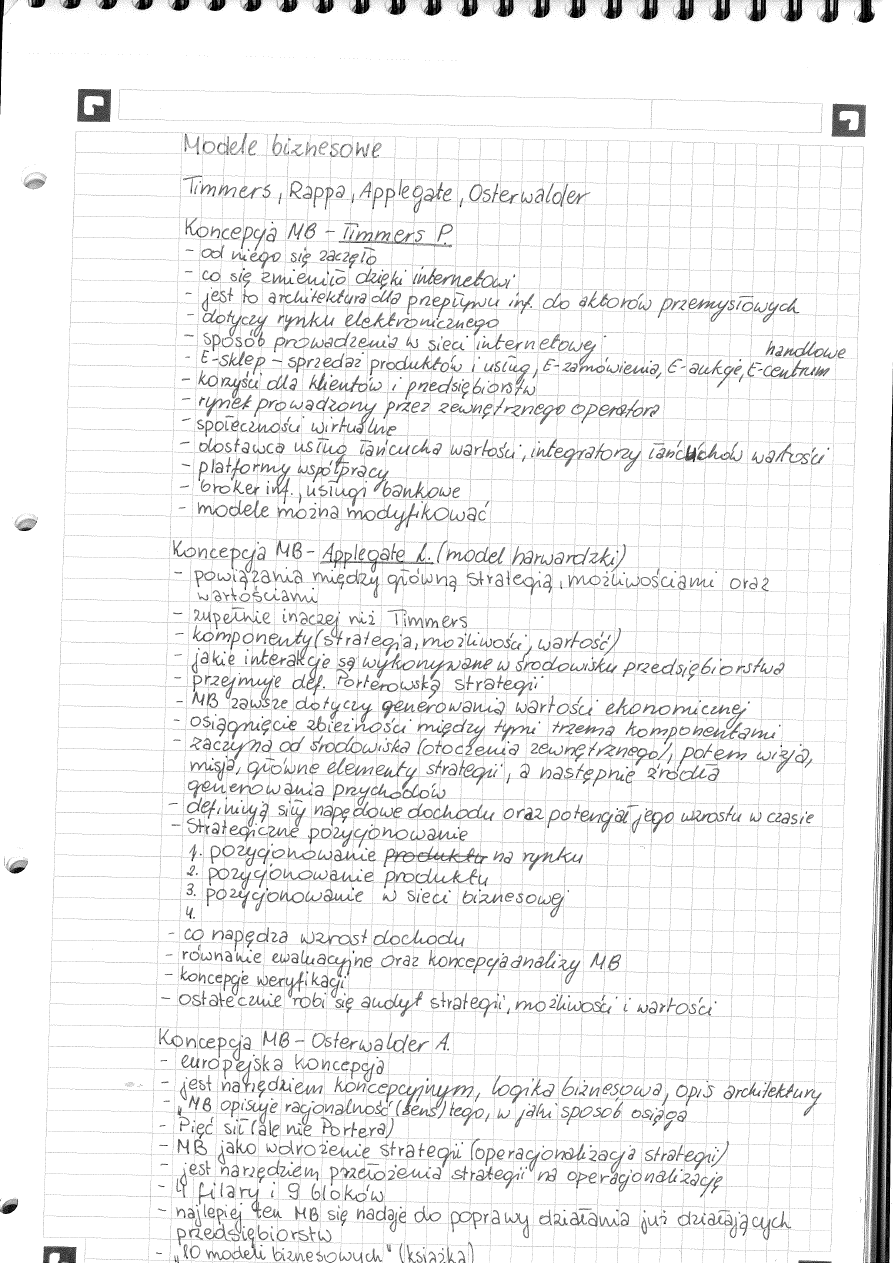 Modele biznesowe
Timmers, Rappa, Applegate, Osterwalder
Koncepcja MB - Timmers P.
- od niego się zaczęło
- co się zmieniło dzięki internetowi
- jest to architektura dla przepływu inf. do aktorów przemysłowych
- dotyczy rynku elektronicznego
- sposób prowadzenia w sieci internetowej
handlowe
- E-sklep - sprzedaż produktów i usług, E-zamówienia, E-aukcje, E-centrum
- korzyści dla klientów i przedsiębiorstw
- rynek prowadzony przez zewnętrznego operatora
- społeczności wirtualne
- dostawca usług łańcucha wartości, integratorzy łańcuchów wartości
- platformy współpracy
- broker inf., usługi bankowe
- modele można modyfikować
Koncepcja MB - Applegate L. (model harwardzki)
- powiązania między główną strategią, możliwościami oraz
wartościami
- zupełnie inaczej niż Timmers
- komponenty (strategia, możliwości, wartość)
- jakie interakcje są wykonywane w środowisku przedsiębiorstwa
- przejmuje def. Porterowską strategii
- MB zawsze dotyczy generowania wartości ekonomicznej
- osiągnięcie zbieżności między tymi trzema komponentami
- zaczyna od środowiska (otoczenia zewnętrznego), potem wizja,
misja, główne elementy strategii, a następnie źródła
generowania przychodów
- definiują siły napędowe dochodu oraz potencjał jego wzrostu w czasie
- Strategiczne pozycjonowanie
1. pozycjonowanie produktu na rynku
2. pozycjonowanie produktu
3. pozycjonowanie w sieci biznesowej
4.
- co napędza wzrost dochodu
- równanie ewaluacyjne oraz koncepcja analizy MB
- koncepcje weryfikacji
- ostatecznie robi się audyt strategii, możliwości i wartości
Koncepcja MB - Osterwalder A.
- europejska koncepcja
- jest narzędziem koncepcyjnym, logika biznesowa, opis architektury
- „MB opisuje racjonalność (sens) tego, w jaki sposób osiąga
- Pięć sił (ale nie Portera)
- MB jako wdrożenie strategii (operacjonalizacja strategii)
- jest narzędziem przełożenia strategii na operacjonalizację
- 4 filary i 9 bloków
- najlepiej ten MB się nadaje do poprawy działania już działających
przedsiębiorstw
- „10 modeli biznesowych" (książka)